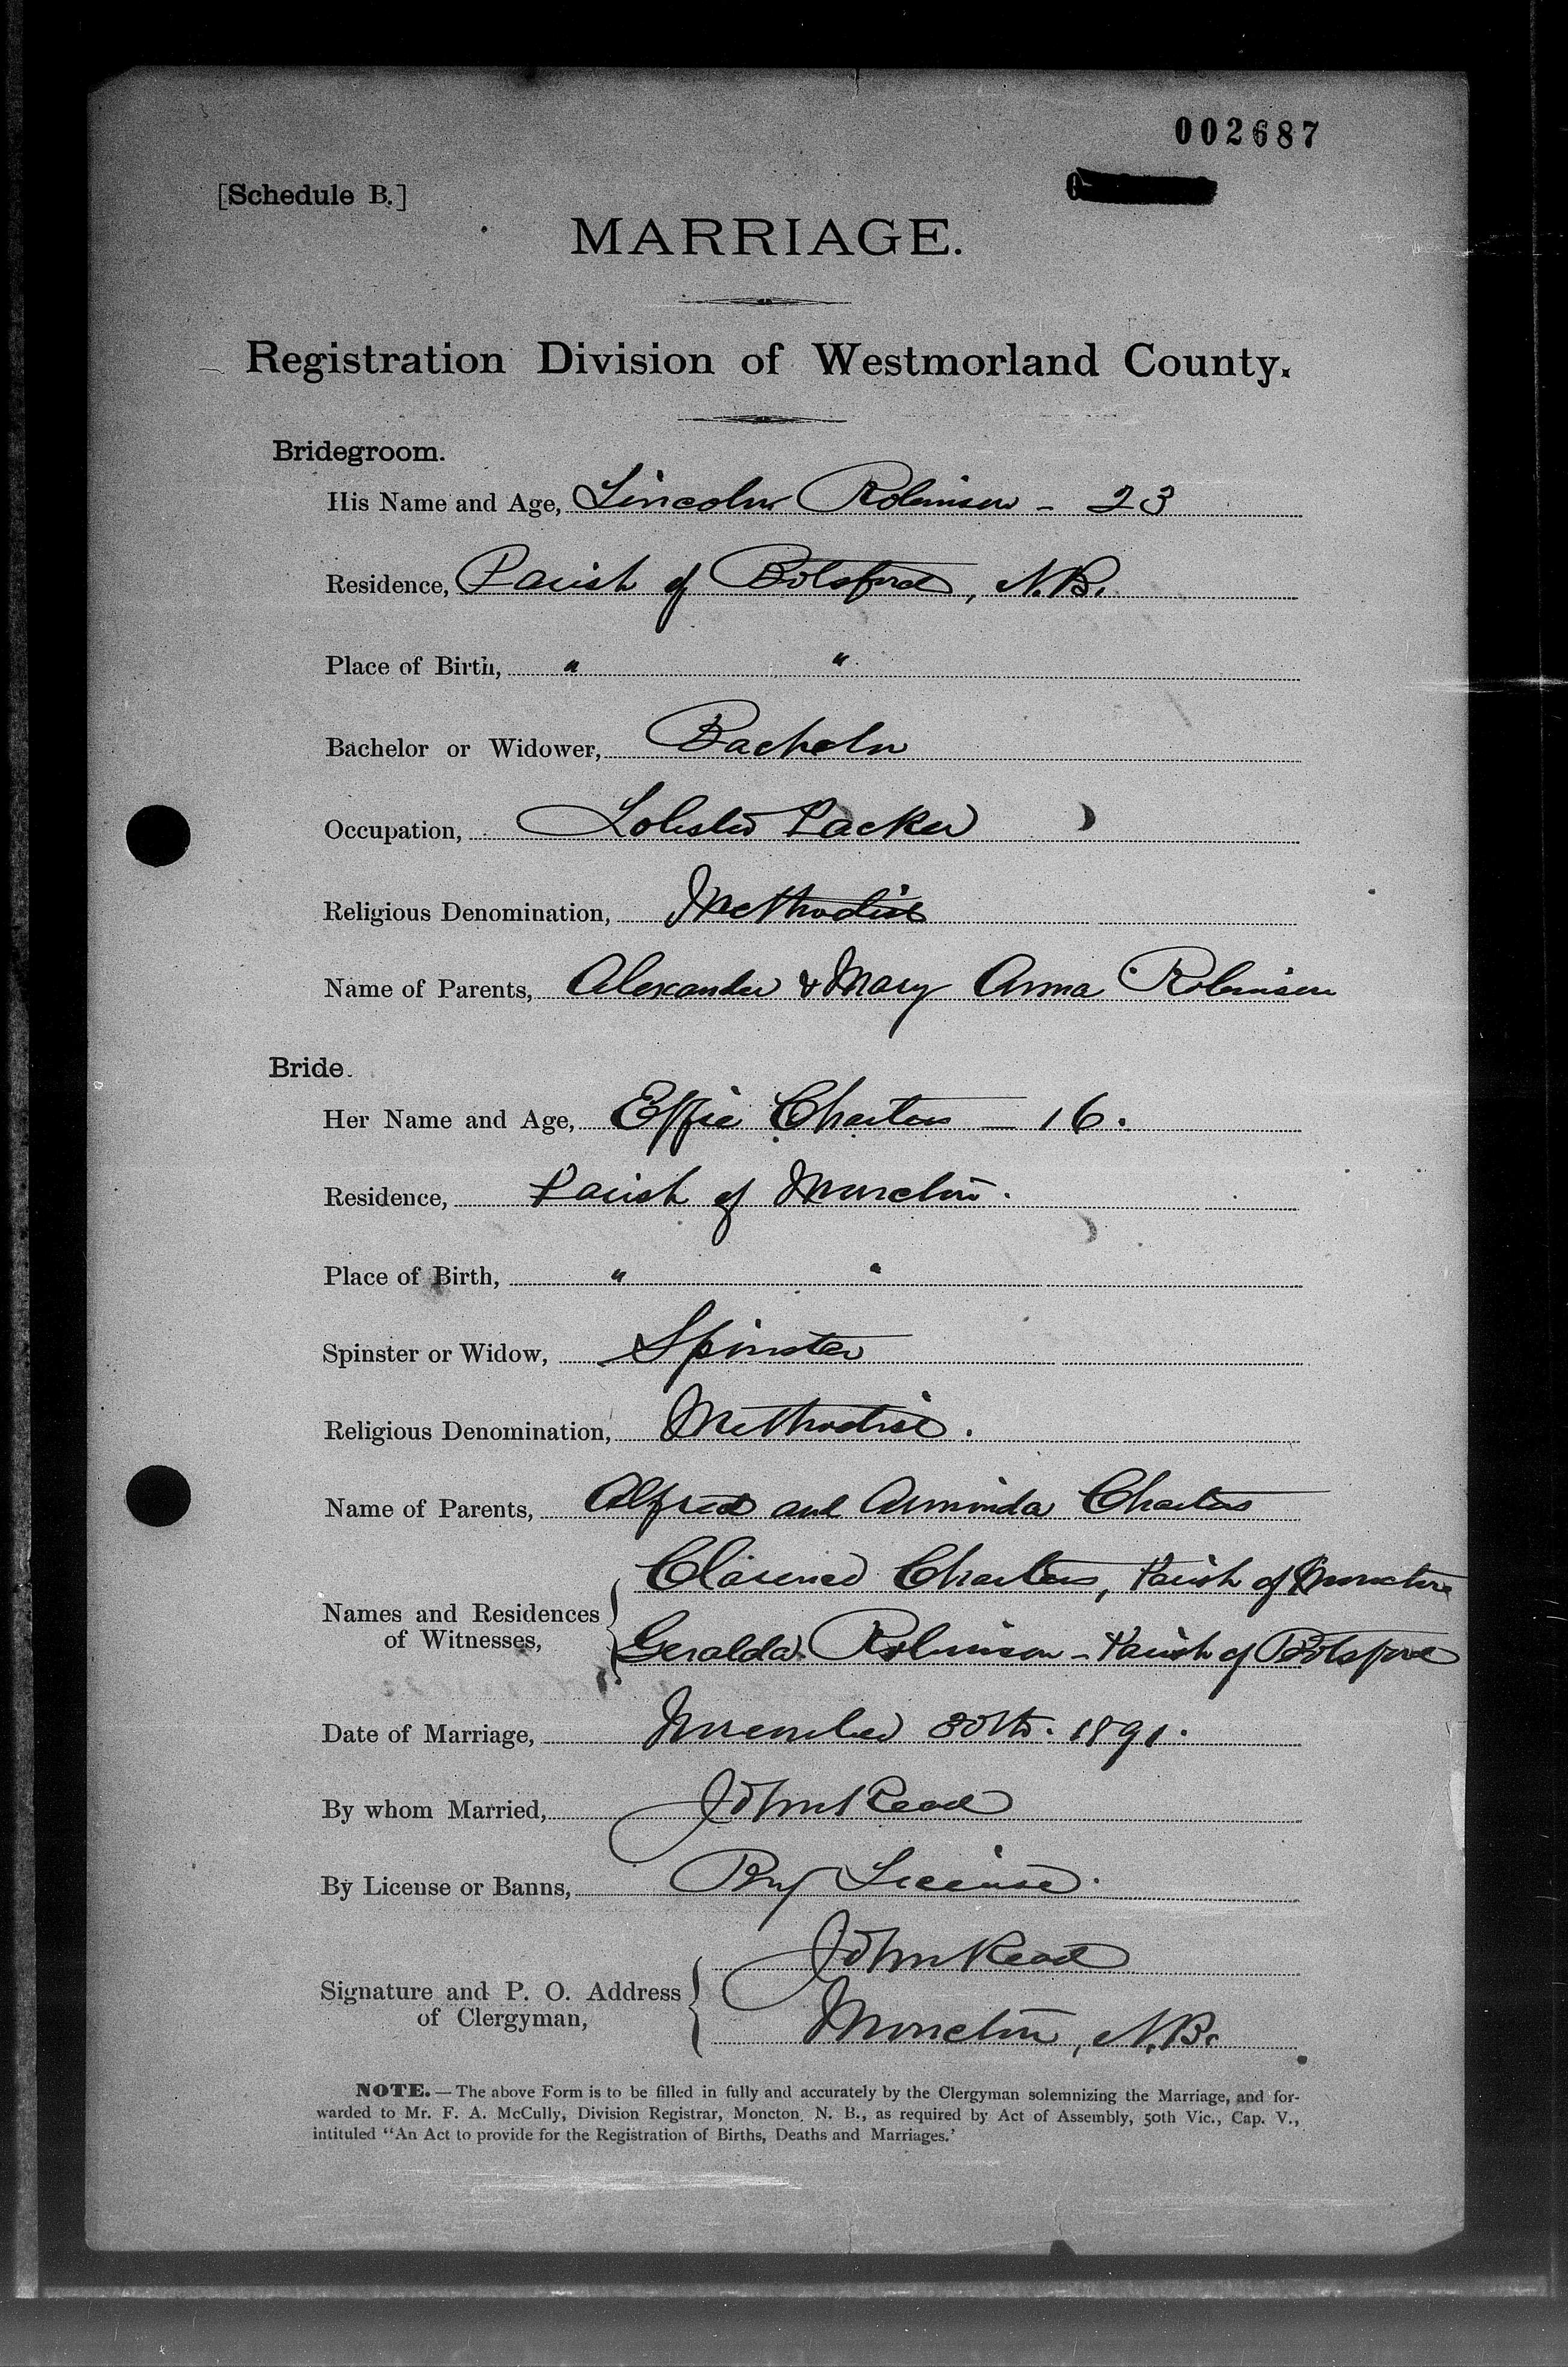 002687
[Schedule B.]
MARRIAGE.
Registration Division of Westmorland County.
Bridegroom.
His Name and Age, Lincoln Robinson - 23
Residence, Parish of Botsford, N.B.
Place of Birth, " "
Bachelor or Widower, Bachelor
Occupation, Lobster Packer
Religious Denomination, Methodist
Name of Parents, Alexander & Mary Anna Robinson
Bride.
Her Name and Age, Effie Charters - 16.
Residence, Parish of Moncton.
Place of Birth, " "
Spinster or Widow, Spinster
Religious Denomination, Methodist.
Name of Parents, Alfred and Arminda Charters
Clarence Charters, Parish of Moncton
Names and Residences of Witnesses,
Geralda Robinson - Parish of Botsford
Date of Marriage, November 30th. 1891.
By whom Married, John Read
By License or Banns, By License.
John Read
Signature and P. O. Address of Clergyman,
Moncton, N.B.
NOTE. — The above Form is to be filled in fully and accurately by the Clergyman solemnizing the Marriage, and for-
warded to Mr. F. A. McCully, Division Registrar, Moncton, N. B., as required by Act of Assembly, 50th Vic., Cap. V.,
intituled "An Act to provide for the Registration of Births, Deaths and Marriages.'